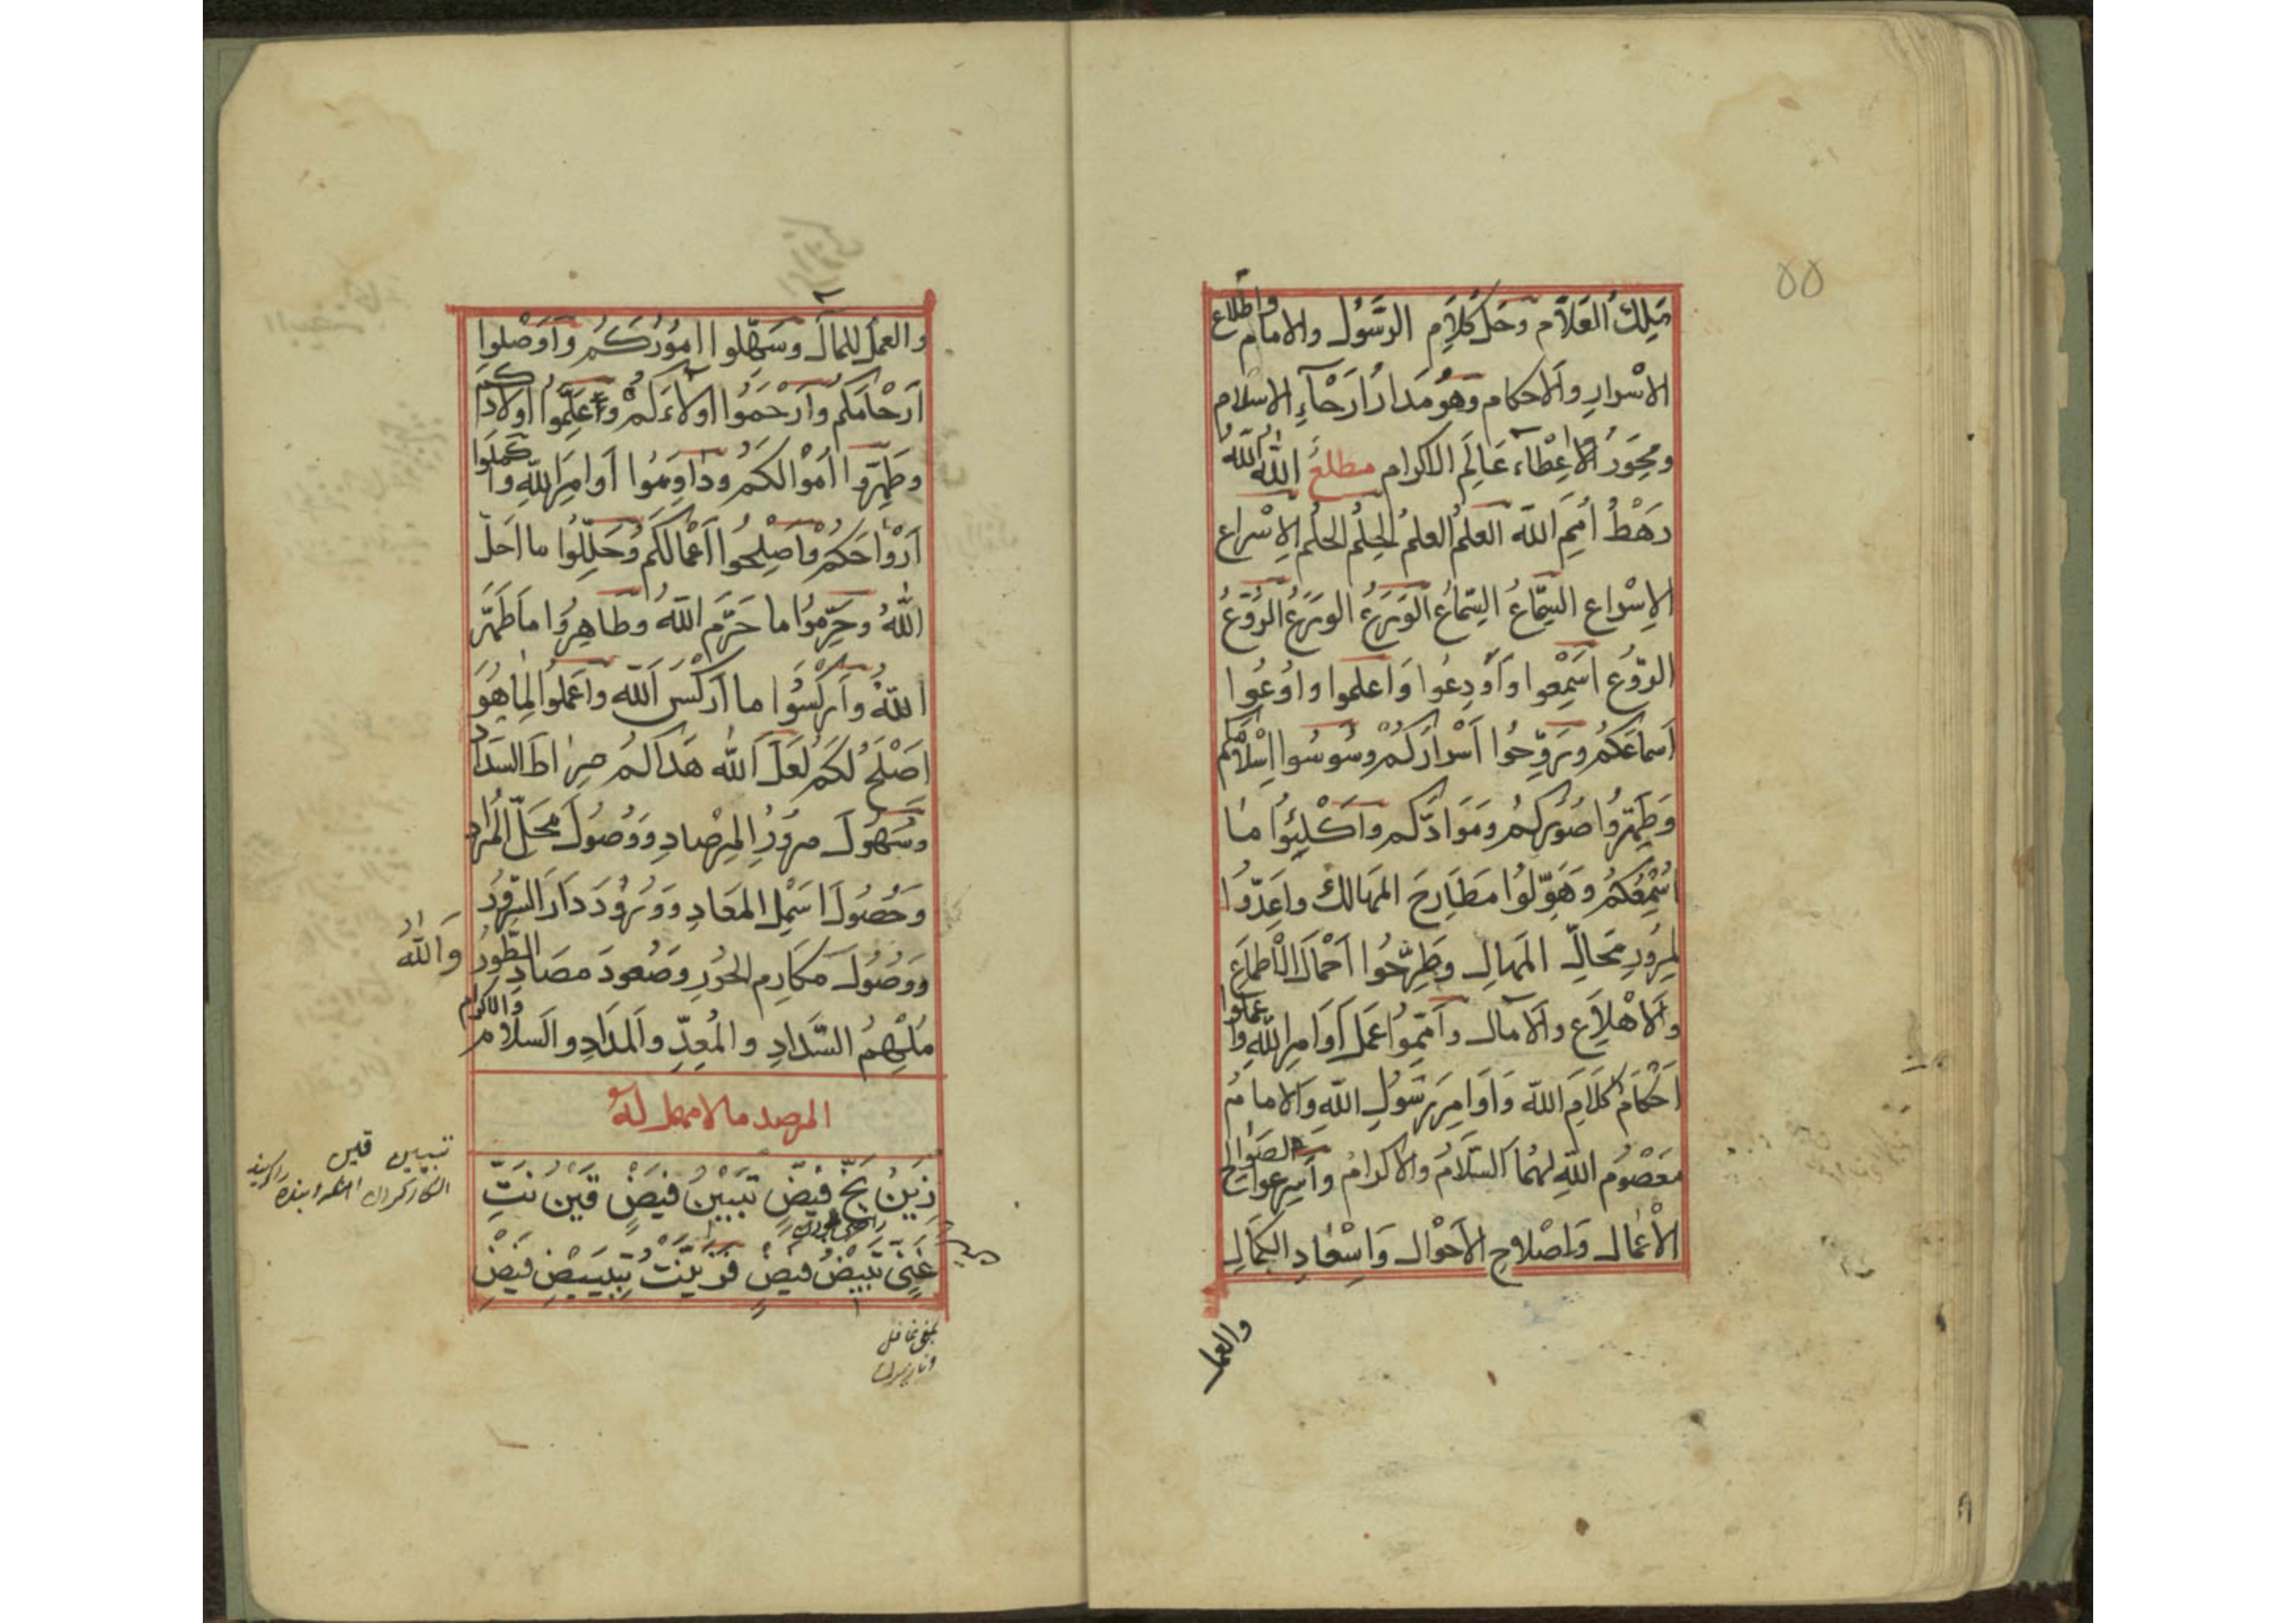 مَلِكُ العَلَّام وحَلّ كَلَامِ الرَّسُول والامام واطّلاع
الاسْرار والاحكام وَهُو مَدارُ اَرْحَآءِ الاسلام
ومِحْوَرُ الاِعْطاء عَالَم الاكرام مطلعٌ اللّٰه اللّٰه
رَهْطُ اُمَمِ اللّٰه العِلْم العِلْم الحِلْم الحِلْم الاِسْراع
الاِسْراع السِّماعُ السِّماعُ الوَرَعُ الوَرَعُ الرَّوْعُ
الرَّوْع اسْمِعوا وَاَوْدِعُوا وَاعلموا واوْعُوا
اَسماعَكُم ورَوِّحُوا اَسْرارَكُمْ وسُوسُوا اِسْلامَكُم
وَطَهِّرُوا صُوَرَكُم ومَوَادَّكُم واكْلِئوا ما
اسْمِعُكُم وَهَوِّلُوا مَطَارِحَ المهالك واَعِدّوا
لِمُرورِ مَحَالِّ المَهالِ وَطَرِّحُوا اَحْمالَ الاَطماعِ
وَالاهْلاعِ والآمال وَاَتِمّوا عَمَلَ اَوامِرِ اللّٰهِ واعملوا
اَحْكَامَ كَلَامِ اللّٰه وَاَوامِرَ رَسُولِ اللّٰهِ وَالامامُ
مَعْصُوم اللّٰهِ لهُمَا السَّلامُ والاكرامُ واَسْرِعوا لصَوالح
الْاَعْمال وَاِصْلاحِ الاَحْوال وَاِسْعادِ الكَمالِ
والعمل
والعَمَل للمآل وسَهِّلوا اُمُورَكُم وَاَوْصِلُوا
اَرْحامَكُم وارْحَمُوا اولاءَكُم وَعَلِّمُوا اولادَكُم
وطَهِّرُوا اَمْوالكُم وَداوِمُوا اَوامِرَ اللّٰهِ وكملوا
اَرْواحَكُم واَصْلِحُوا اَعْمالَكُم وحَلِّلُوا ما احَلّ
اللّٰهُ وحَرِّمُوا ما حَرَّم اللّٰهُ وطاهِرُوا ما طَهَّر
اللّٰهُ واَرْكِسُوا ما اَرْكَسَ اللّٰه واعْمَلُوا لِما هُوَ
اصْلَحُ لَكُم لَعَلَّ اللّٰه هَداكُم صِراطَ السَدَاد
وسُهُولَ مرُورِ المِرْصادِ وَوُصُولَ مَحَلِّ المُراد
وَحُصُولَ اسْهَلِ المَعَادِ وَوُرُودَ دَارَ السُّرُور
وَوُصُولَ مَكارِم الحُورِ وصُعودَ مصَادِ الطُّور وَاللّٰه
مُلْهِمُ السَّدادِ والمُعِدِّ والمَدَادِ والسَلام والاكرام
المرصد مالا مهمل له
زَيْنُ بَخٍّ فَيْضٍ تَبْيِينُ فَيْضٍ قَيْنٍ
غَنِيّ تَبْيِيضُ فَيْضٍ فَزَيَّنَتْ بِتَبْيِيضِ فَيْضٍ
تبيين قين